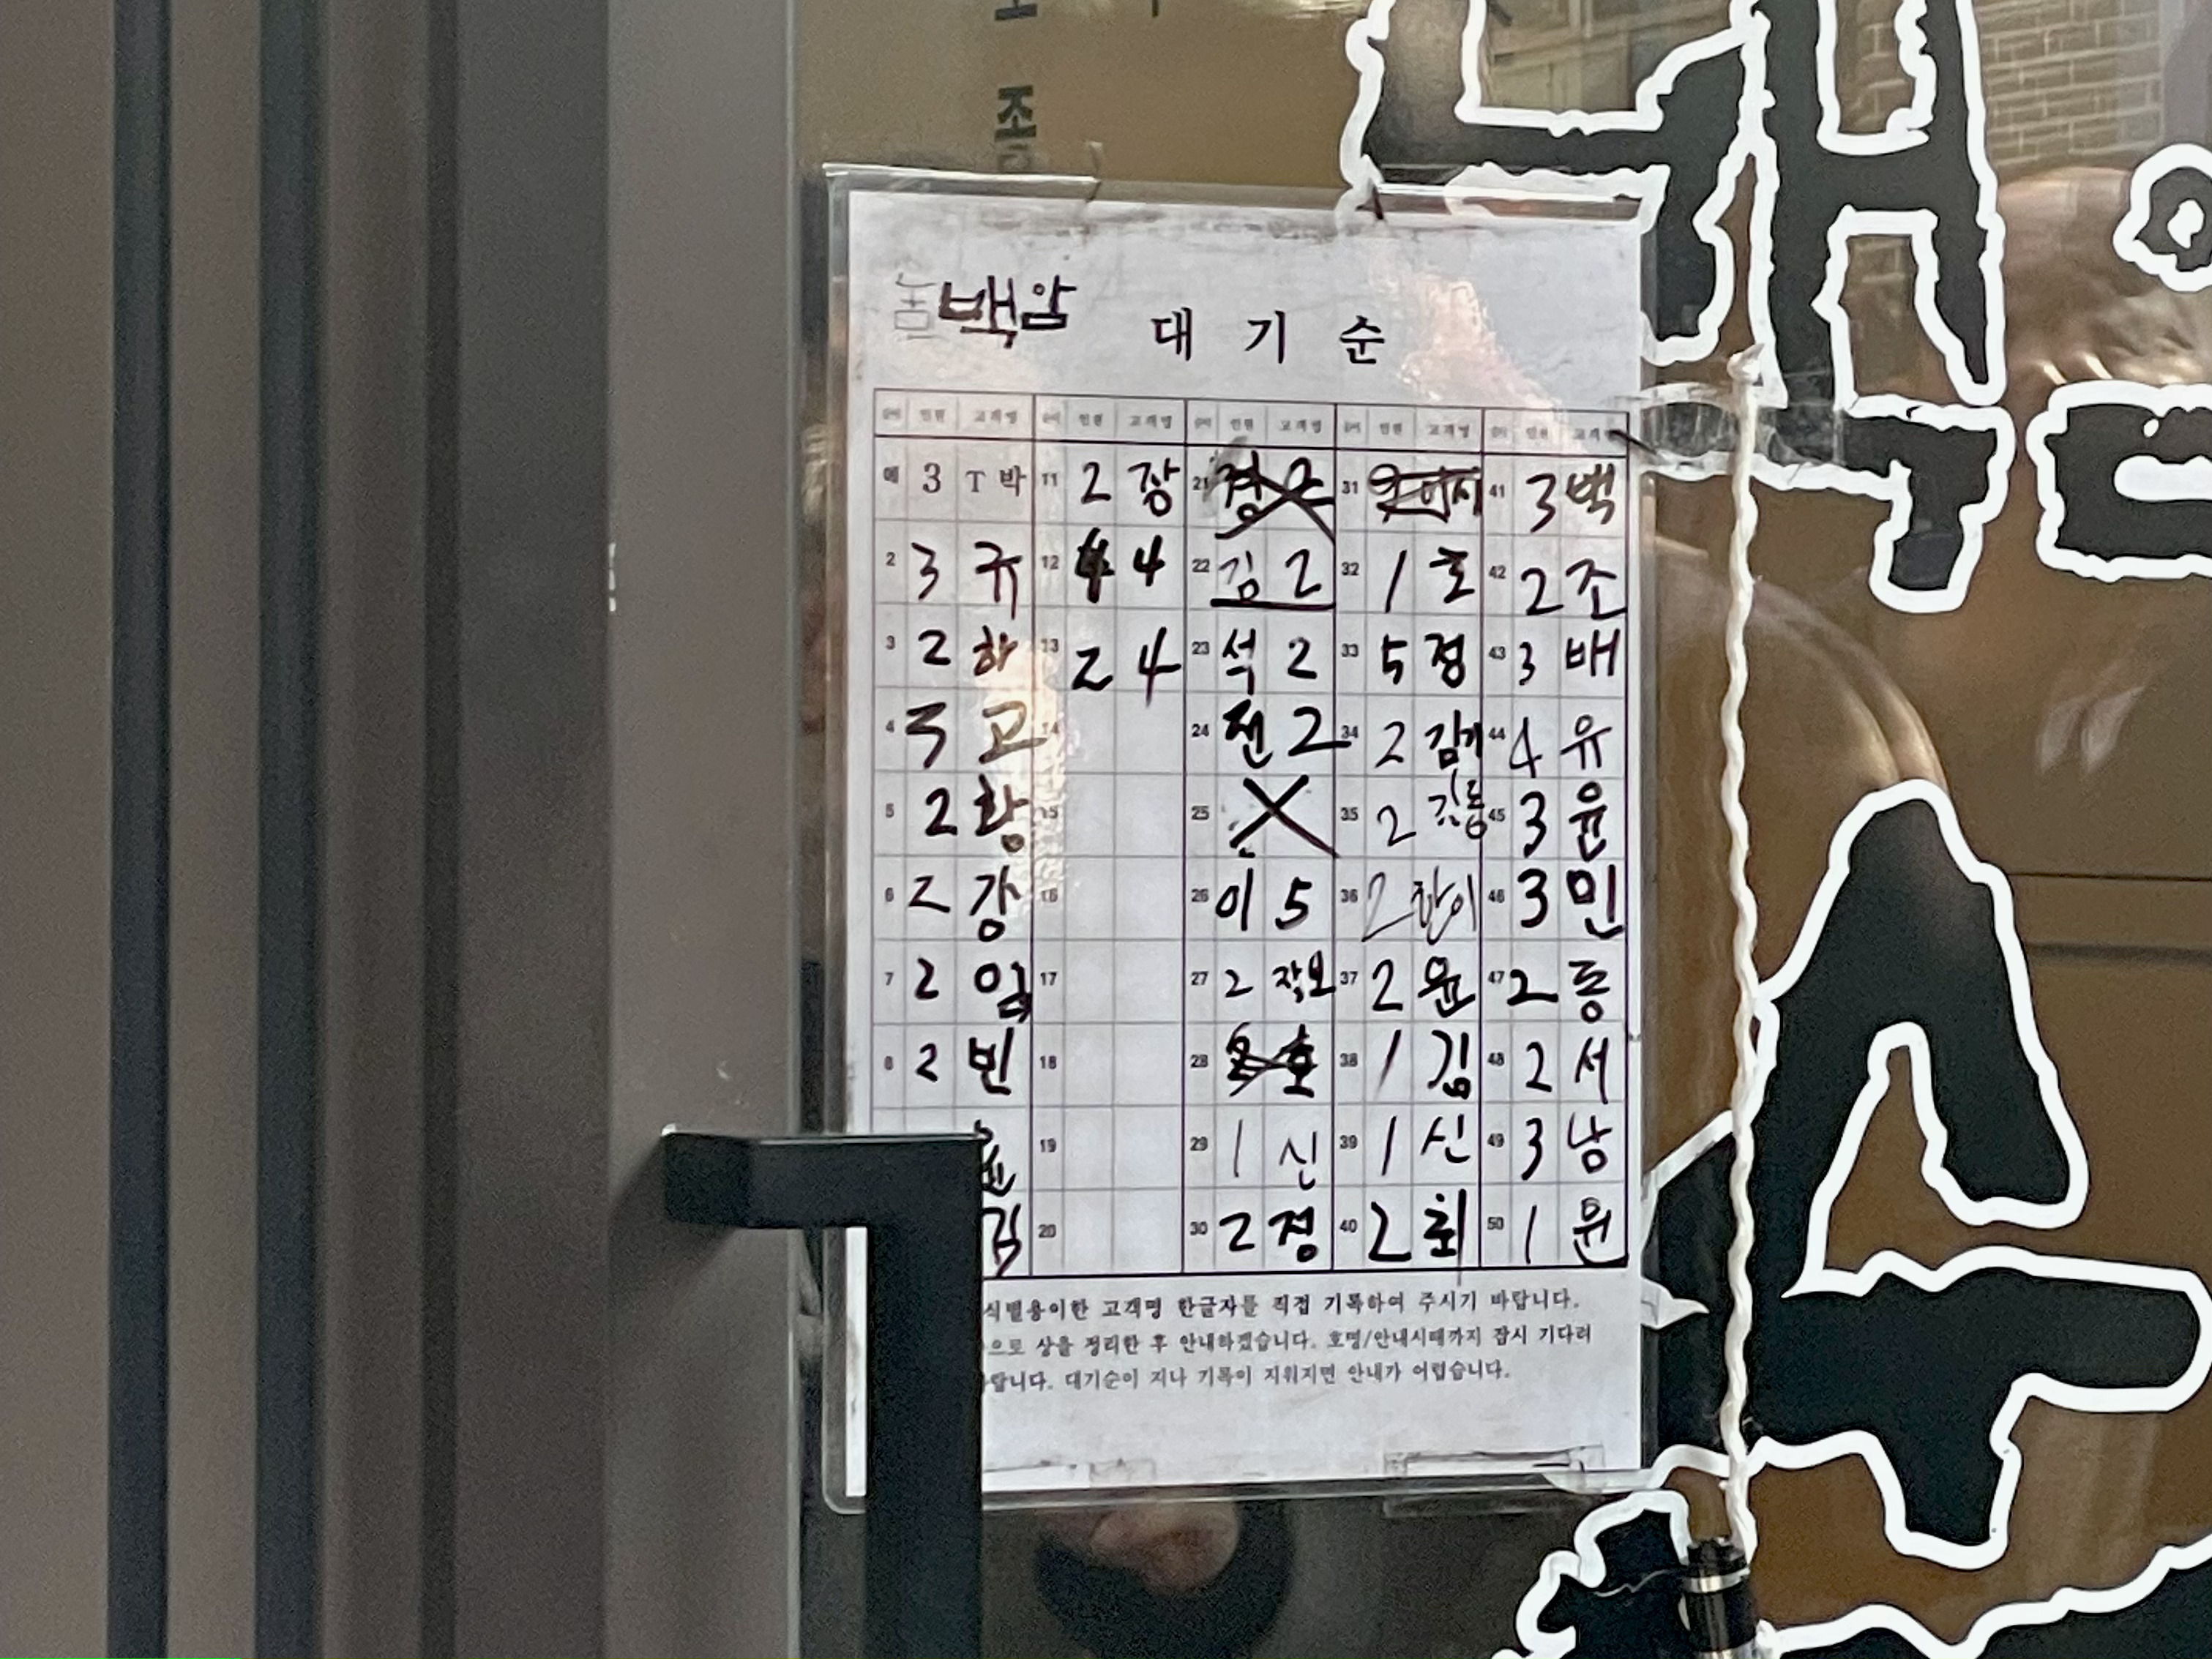 조
백암
대 기 순
순번 인원 고객명 순번 인원 고객명 순번 인원 고객명 순번 인원 고객명 순번 인원 고객명
예 3 T 박 11 2 장 21 31 41 3 백
2 3 규 12 4 4 22 김 2 32 1 호 42 2 조
3 2 하 13 2 4 23 석 2 33 5 정 43 3 배
4 3 고 14 24 전 2 34 2 김기 44 4 유
5 2 황 15 25 35 2 김동 45 3 윤
6 2 강 16 26 이 5 36 2 한이 46 3 민
7 2 임 17 27 2 작보 37 2 윤 47 2 동
8 2 빈 18 28 38 1 김 48 2 서
19 29 1 신 39 1 신 49 3 남
김 20 30 2 정 40 2 최 50 1 원
식별용이한 고객명 한글자를 직접 기록하여 주시기 바랍니다.
으로 상을 정리한 후 안내하겠습니다. 호명/안내시때까지 잠시 기다려
랍니다. 대기순이 지나 기록이 지워지면 안내가 어렵습니다.